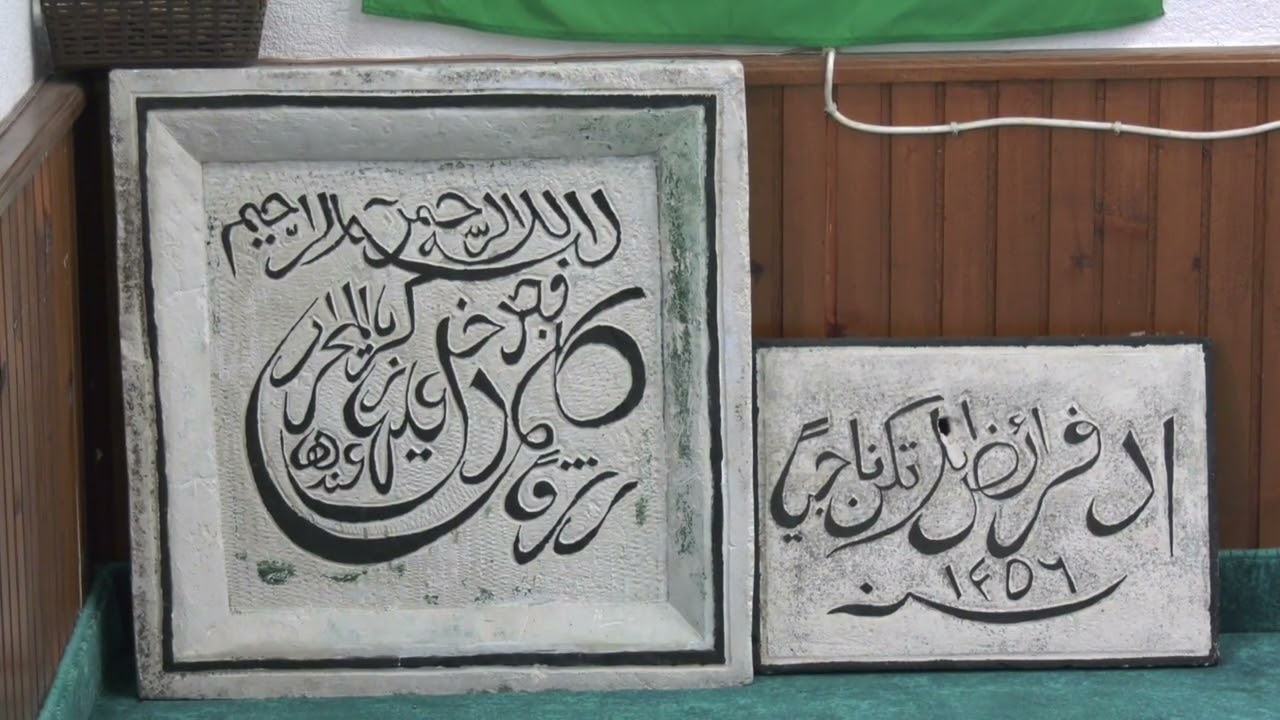 بسم الله الرحمن الرحيم
كلما دخل عليها زكريا المحراب
وجد عندها رزقا
اد فرائض الله تكن ناجياً
سنه ١٤٥٦